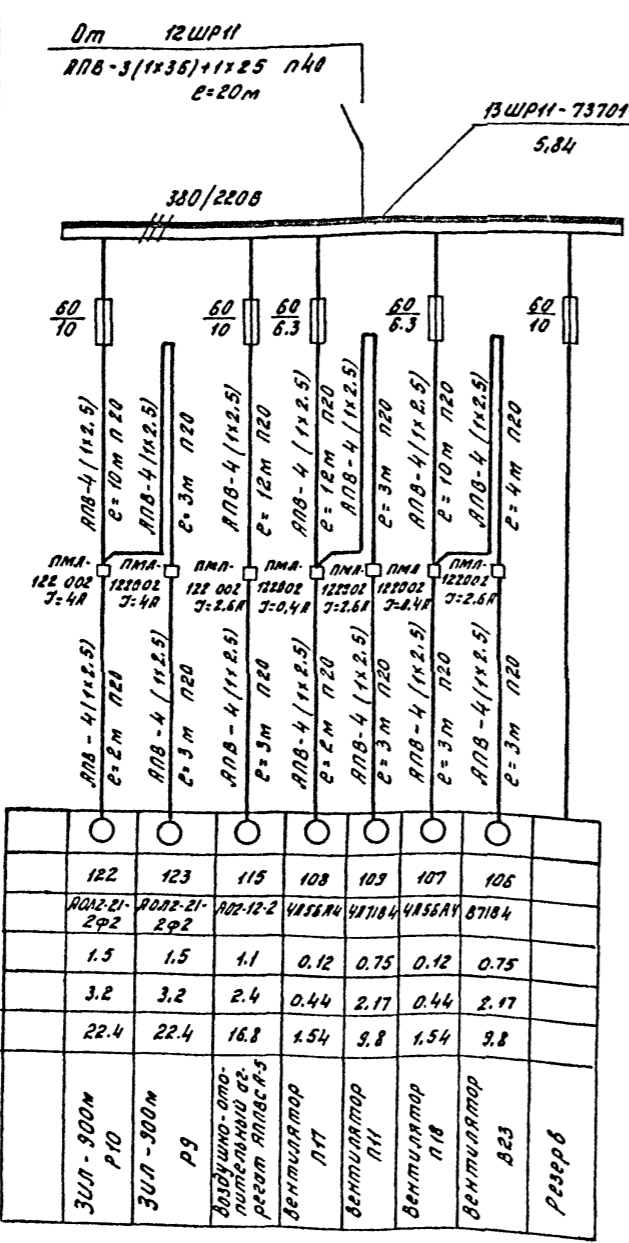 От 12ШР11
АПВ-3(1х35)+1х25 п40
ℓ=20м
13ШР11-73701
5,84
380/220В
60/10
60/10
60/6.3
60/6.3
60/10
АПВ-4(1х2.5)
ℓ=10м п20
АПВ-4(1х2.5)
ℓ=3м п20
АПВ-4(1х2.5)
ℓ=12м п20
АПВ-4(1х2.5)
ℓ=12м п20
АПВ-4(1х2.5)
ℓ=3м п20
АПВ-4(1х2.5)
ℓ=10м п20
АПВ-4(1х2.5)
ℓ=4м п20
ПМЛ-
122 002
I=4А
ПМЛ-
122002
I=4А
ПМЛ-
122 002
I=2.6А
ПМЛ-
122002
I=0,4А
ПМЛ-
122002
I=2.6А
ПМЛ
122002
I=0.4А
ПМЛ-
122002
I=2.6А
АПВ-4(1х2.5)
ℓ=2м п20
АПВ-4(1х2.5)
ℓ=3м п20
АПВ-4(1х2.5)
ℓ=3м п20
АПВ-4(1х2.5)
ℓ=2м п20
АПВ-4(1х2.5)
ℓ=3м п20
АПВ-4(1х2.5)
ℓ=3м п20
АПВ-4(1х2.5)
ℓ=3м п20
122 123 115 108 109 107 106
АОЛ2-21-2ф2 АОЛ2-21-2ф2 АО2-12-2 4А56А4 4А71В4 4А56А4 В71В4
1.5 1.5 1.1 0.12 0.75 0.12 0.75
3.2 3.2 2.4 0.44 2.17 0.44 2.17
22.4 22.4 16.8 1.54 9,8 1.54 9.8
ЗИЛ-900м
Р10
ЗИЛ-900м
Р9
Воздушно-ото-
пительный аг-
регат АППВСА-5
Вентилятор
П17
Вентилятор
П11
Вентилятор
П18
Вентилятор
В23
Резерв